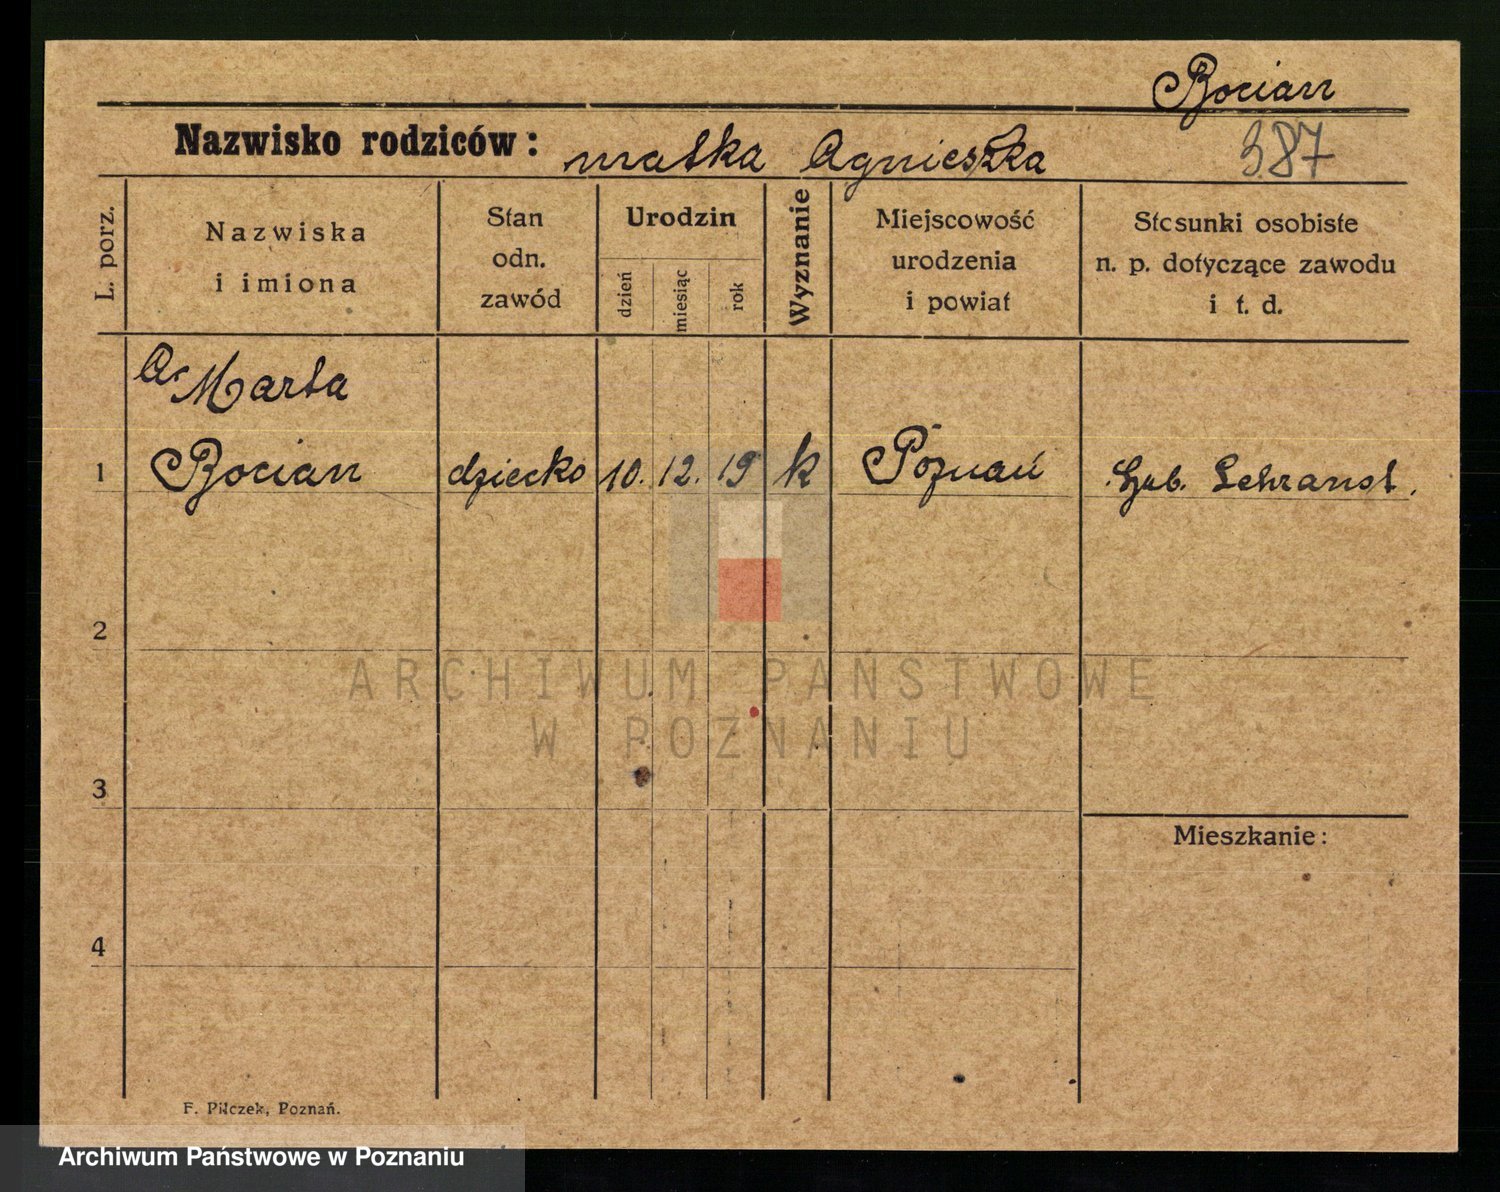 Bocian
Nazwisko rodziców: matka Agnieszka 387
L. porz.
Nazwiska
i imiona
Stan
odn.
zawód
Urodzin
dzień
miesiąc
rok
Wyznanie
Miejscowość
urodzenia
i powiat
Stosunki osobiste
n. p. dotyczące zawodu
i t. d.
Marta
1 Bocian dziecko 10. 12. 19 k Poznań Heb. Lehranst.
2
ARCHIWUM PAŃSTWOWE
W POZNANIU
3
Mieszkanie:
4
F. Pilczek, Poznań.
Archiwum Państwowe w Poznaniu